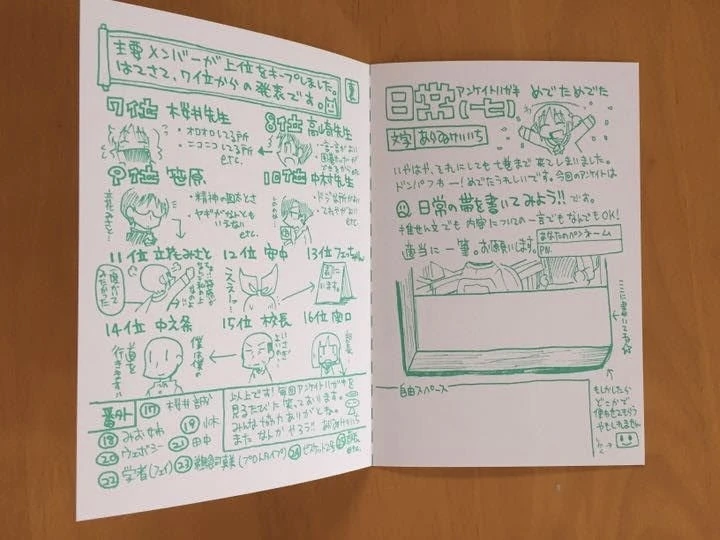 主要メンバーが上位をキープしました。
はてさて、7位からの発表です。
裏
7位 桜井先生
・オロオロしてる所
・ニコニコしてる所
etc.
8位 高崎先生
9位 笹原
・精神の図太さ
・ヤギがなんとも
いえない
etc
10位 中村先生
・ドジな所がかわいい
etc
11位 立花みさと
12位 安中
13位 フェっちゃん
一度かいて
みたかった
ええーっ…
14位 中之条
15位 校長
16位 関口
道を
行きます
僕は僕の
番外
⑰ 桜井 誠
⑱ みお姉
⑲ 小木
⑳ ウェボシー
㉑ 田中
㉒ 学者(フェイ)
㉓ 雑貨阿真(プロトタイプ)
㉔ ビスケット2号
etc.
以上です!毎回アンケイトハガキを
見るたびに笑っております。
みんな協力ありがとね。
またなんかやろう!! あらゐけいいち
日常(七)
アンケイトハガキ
めでためでた
文字 あらゐけいいち
いやはや、それにしても七巻まで来てしまいました。
ドンパフォー!めでたうれしいです。今回のアンケイトは
Q 日常の帯を書いてみよう!! です。
推せん文でも内容についての一言でもなんでもOK!
適当に一筆。お願いします。
あなたのペンネーム
PN.
ここに書いてネ☆
自由スペース
もしかしたら
どこかで
使わせてもらう
やもしれません